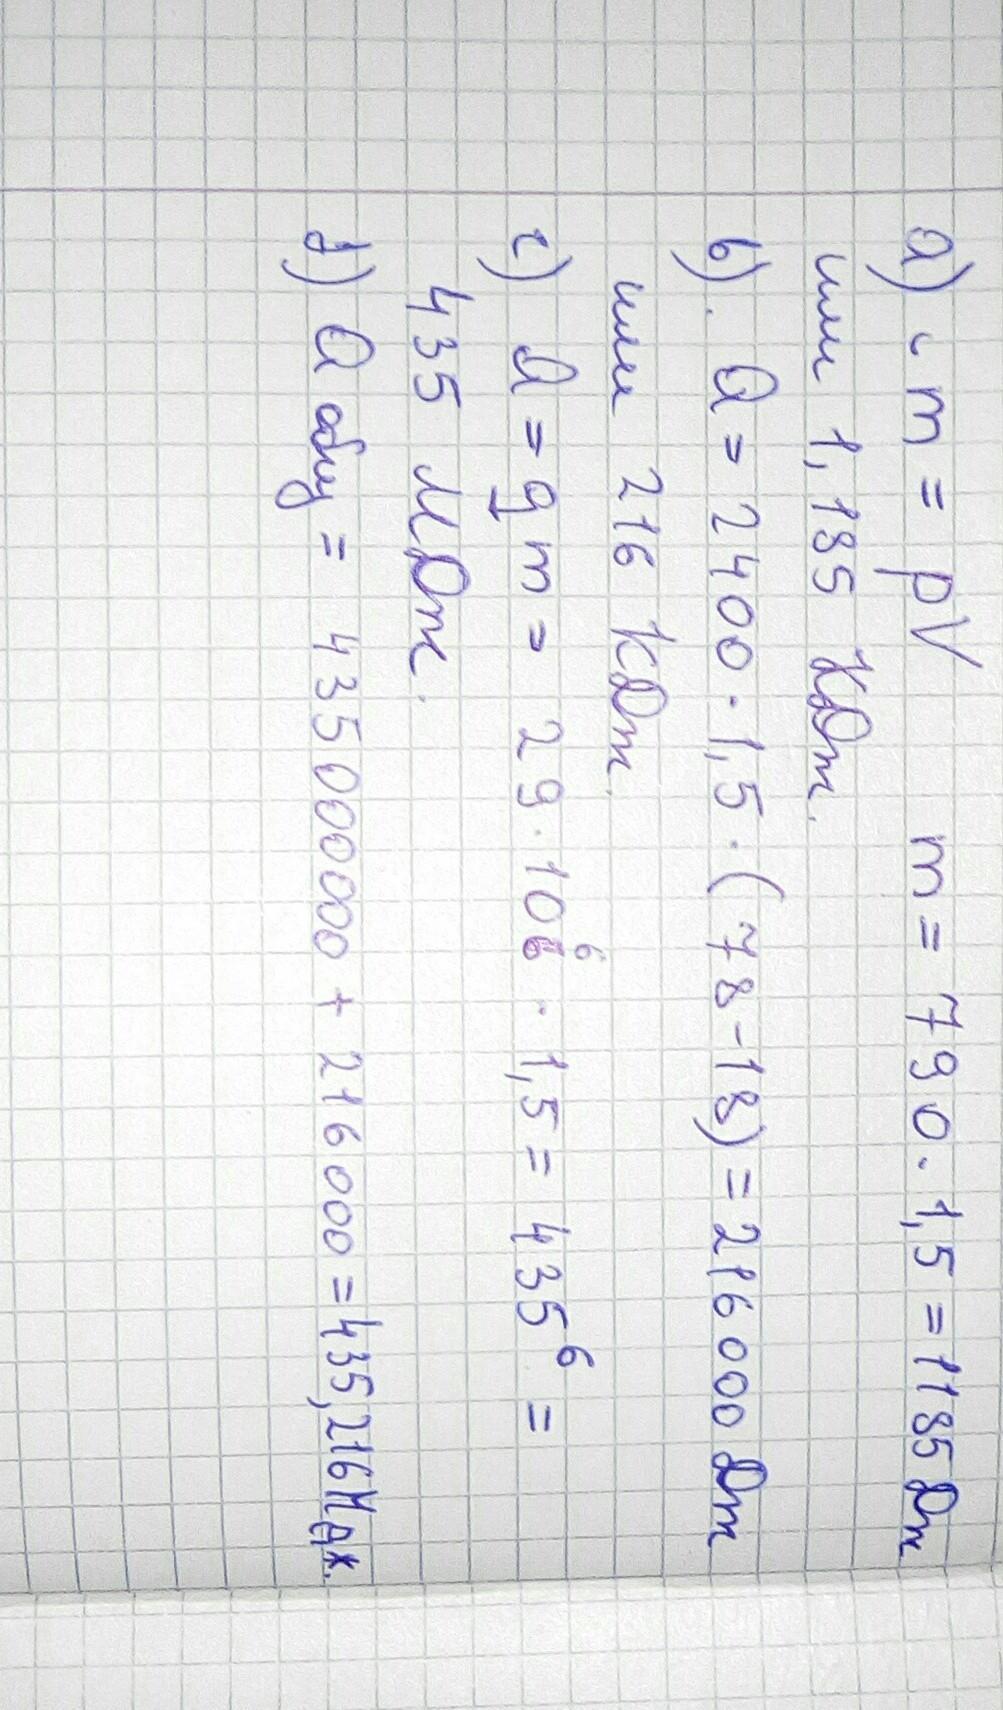 a) m = ρV m = 790 · 1,5 = 1185 Дж
или 1,185 КДж.
b). Q = 2400 · 1,5 · (78-18) = 216000 Дж
или 216 КДж.
c) Q = qm = 29 · 10⁶ · 1,5 = 435⁶ =
435 МДж.
d) Q общ = 43500000 + 216000 = 435,216 МДж.